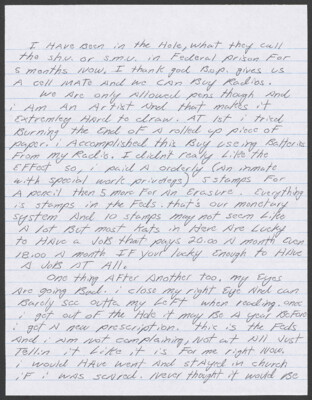 I HAVE BEEN in the Hole, what they call
the s.h.u. or s.m.u. in Federal prison For
5 months Now. I thank god B.o.p. gives us
A cell MATE And we CAN Buy RAdios.
We Are only Allowed pens though And
i Am An Artist And that makes it
Extremley HArd to draw. AT 1st i tried
Burning the End oF A rolled up piece of
paper. i Accomplished this Buy useing BAtteries
From my RAdio. I didnt really Like the
EFFect so, i paid A orderly (An inmate
with special work privleges) 5 stamps For
A pencil then 5 more For An Erasure. Everything
is stamps in the Feds. that's our monetary
system And 10 stamps may not seem Like
A lot But most Kats in Here Are Lucky
to HAve a JoB that pays 20.00 A month Even
18.00 A month IF your lucky Enough to HAve
A JoB AT All.
One thing AFter Another too, my Eyes
Are going Bad. i close my right Eye And can
BArely see outta my LeFT when reading. once
i got out of the Hole it may Be A year BeFore
i got A new prescription. this is the Feds
And i Am not complaining, Not at All Just
Tellin it Like it is. For me right Now
i would HAve went And stayed in church
iF i was scared. Never thought it would Be